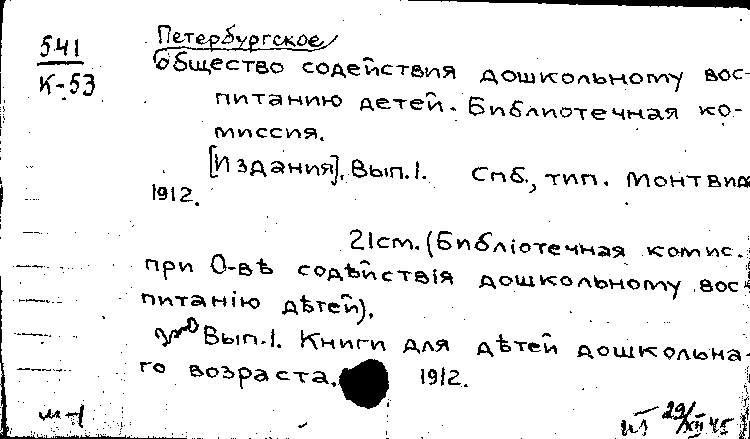 541
К-53
Петербургское
общество содействия дошкольному вос-
питанию детей. Библиотечная ко-
миссия.
[Издания]. Вып.1. Спб., тип. Монтвид
1912.
21см. (Библiотечная комис.
при О-вѣ содѣйствiя дошкольному вос-
питанiю дѣтей).
Вып.1. Книги для дѣтей дошкольна-
го возраста. 1912.
м-1
29/XII 45